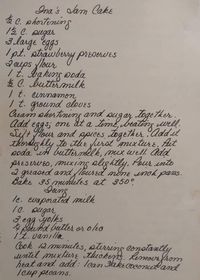 Ina's Jam Cake
1/2 C. shortening
1 1/2 C. sugar
3 large eggs
1 pt. strawberry preserves
3 cups flour
1 t. baking soda
1/2 C. buttermilk
1 t. cinnamon
1 t. ground cloves
Cream shortening and sugar together.
Add eggs, one at a time, beating well.
Sift flour and spices together. Add it
thoroughly to the first mixture. Put
soda in buttermilk, mix well. Add
preserves, mixing slightly. Pour into
2 greased and floured nine inch pans.
Bake 35 minutes at 350°.
Icing
1c. evaporated milk
1 c. sugar
3 egg yolks
1/4 pound butter or oleo
1 t. vanilla
Cook 12 minutes, stirring constantly
until mixture thickens. Remove from
heat and add 1 can flake coconut and
1 cup pecans.